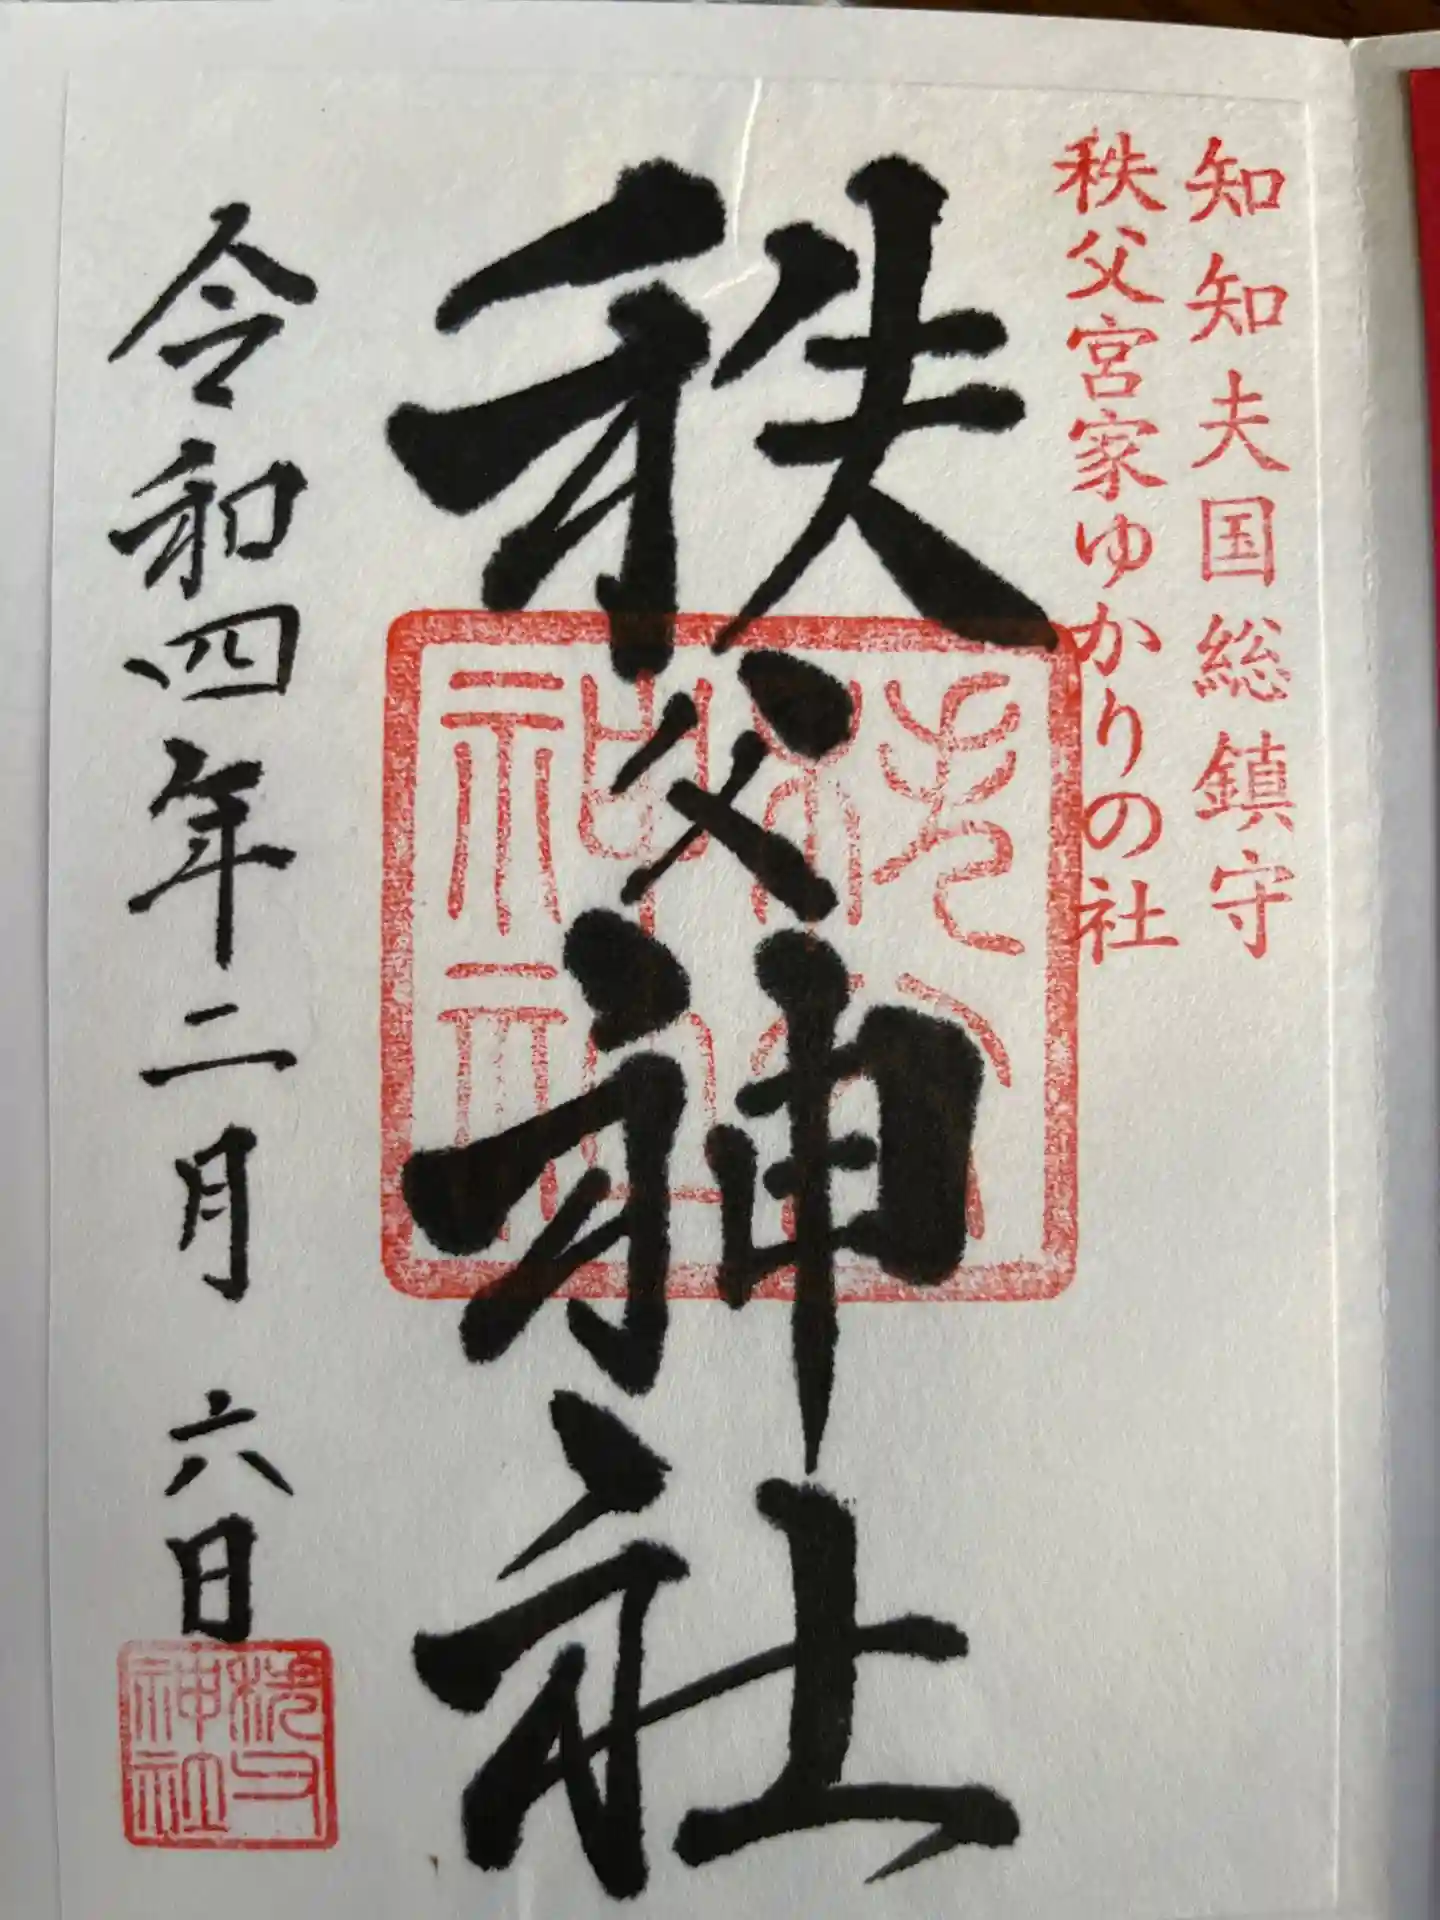 知知夫国総鎮守
秩父宮家ゆかりの社
秩父神社
秩父神社
令和四年二月 六日
秩父神社